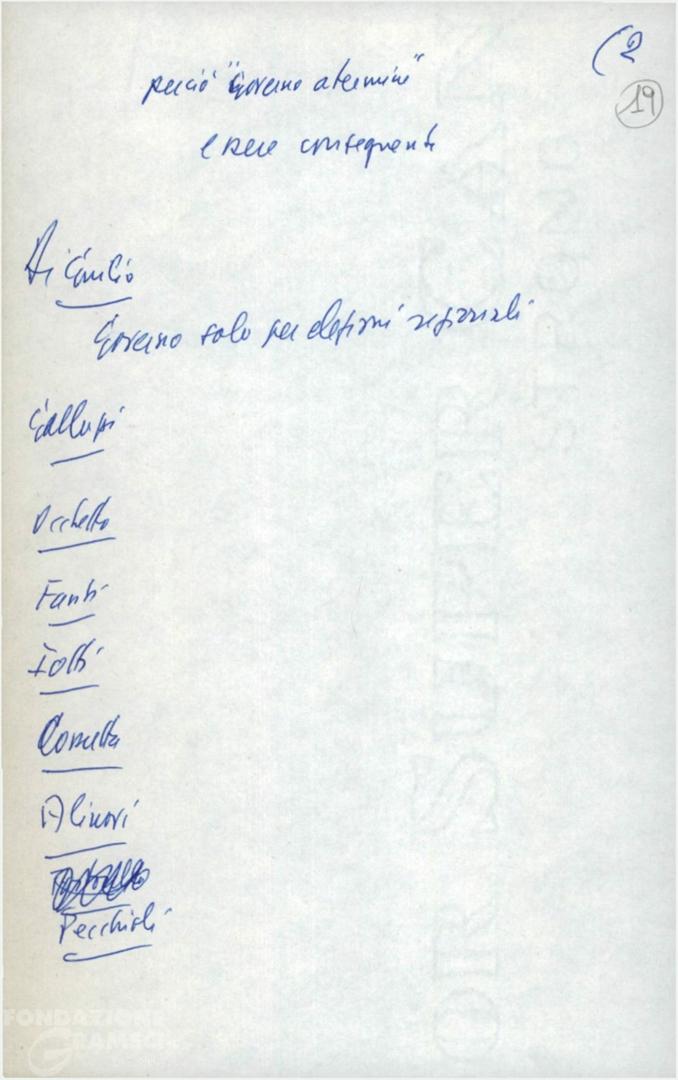 (2
19
perciò "Governo a termine"
essere conseguenti
Di Giulio
Governo solo per elezioni regionali
Galluzzi
Occhetto
Fanti
Iotti
Cossutta
Alinovi
Pecchioli
FONDAZIONE
GRAMSCI